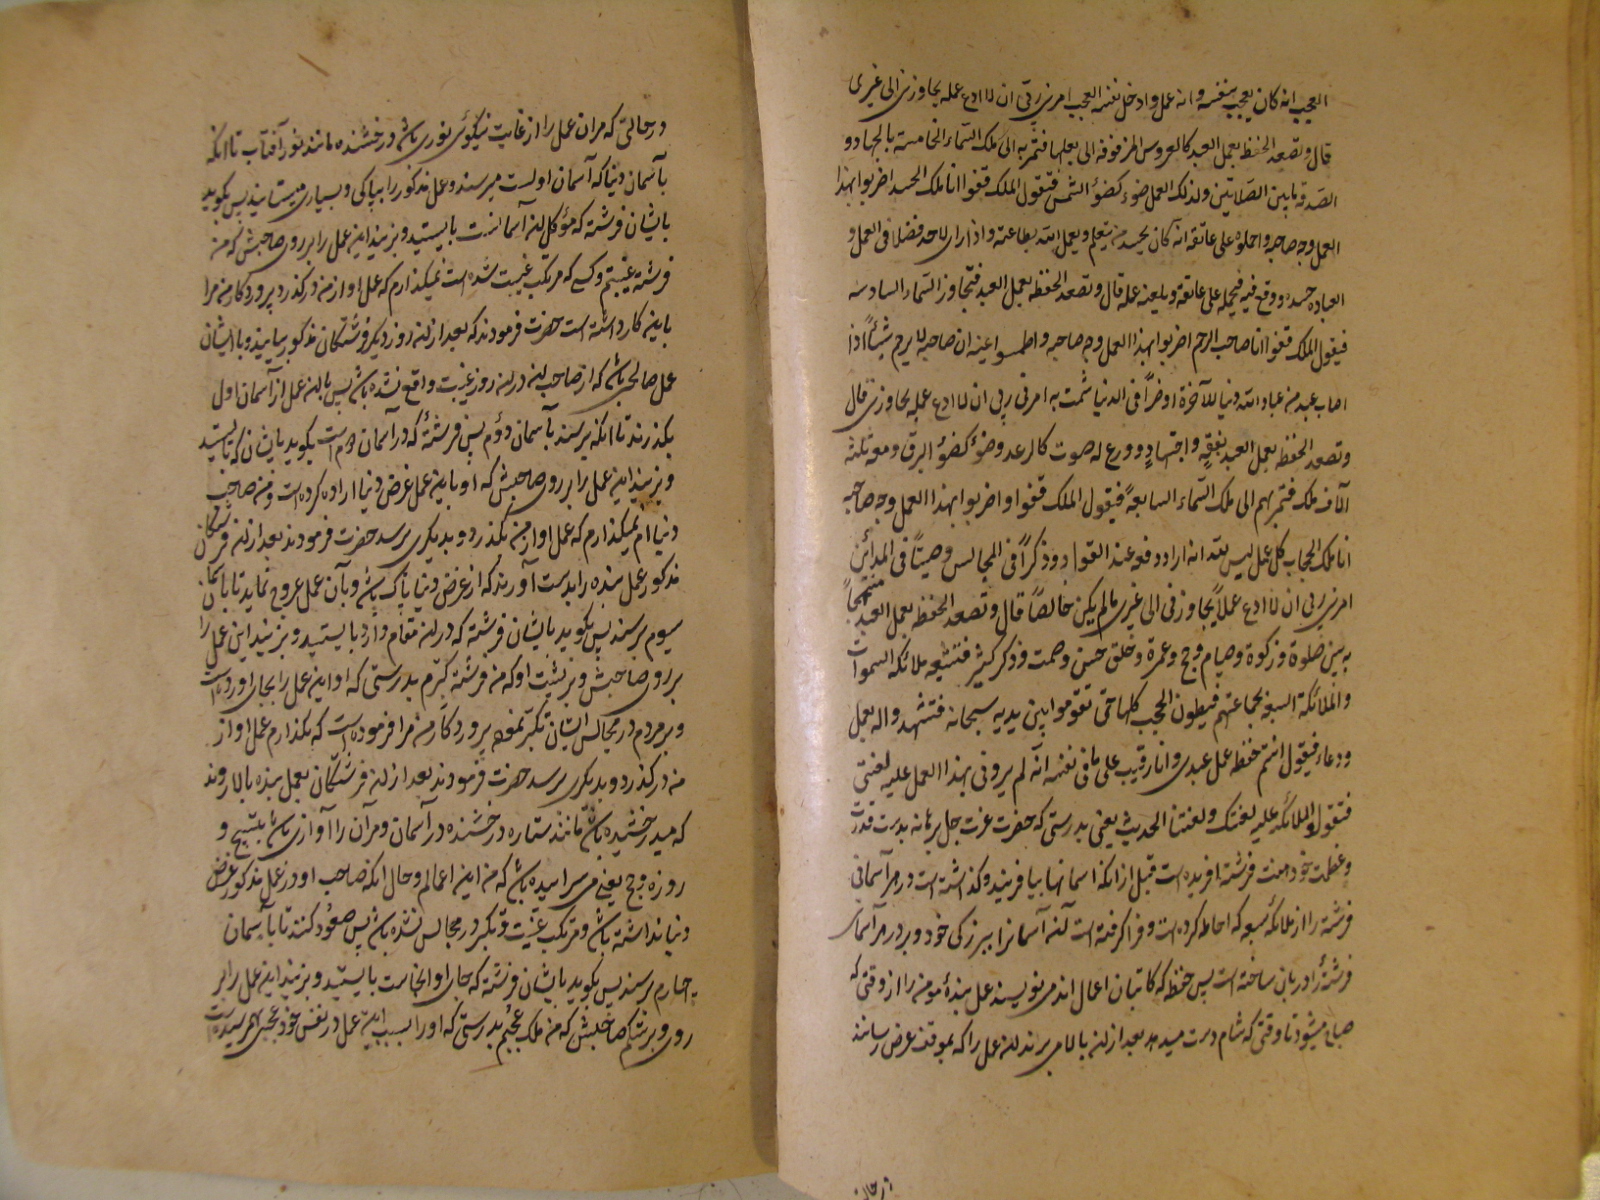 العجب انه كان يعجب بنفسه و انه عمل و ادخل نفسه العجب امرنى ربى ان لا ادع عمله يجاوزنى الى غيرى
قال و تصعد الحفظه بعمل العبد كالعروس المزفوفه الى بعلها فتمر به الى ملك السماء الخامسة بالجهاد و
الصدقه ما بين الصلاتين و لذلك العمل ضوء كضوء الشمس فيقول الملك قفوا انا ملك الحسد اضربوا بهذا
العمل وجه صاحبه و احملوه على عاتقه انه كان يحسد من يتعلم و يعمل الله بطاعته و اذا راى لاحد فضلا فى العمل و
العباده حسده و وقع فيه فيحمله على عاتقه و يلعنه عمله قال و تصعد الحفظه بعمل العبد فتجاوز السماء السادسه
فيقول الملك قفوا انا صاحب الرحم اضربوا بهذا العمل وجه صاحبه و اطمسوا عينيه ان صاحبه لا يرحم شيئاً اذا
اصاب عبد من عباد الله دنيا للآخرة او ضراً فى الدنيا شمت به امرنى ربى ان لا ادع عمله يجاوزنى قال
و تصعد الحفظه بعمل العبد بفقهٍ و اجتهادٍ و ورع له صوت كالرعد و ضوء كضوء البرق و معه ثلثه
آلاف ملك فتمر بهم الى ملك السماء السابعةً فيقول الملك قفوا و اضربوا بهذا العمل وجه صاحبه
انا ملك الحجاب كل عمل ليس لله انه اراد رفعه عند القواد و ذكراً فى المجالس و صيتاً فى المدائن
امرنى ربى ان لا ادع عملاً يجاوزنى الى غيرى ما لم يكن خالصاً قال و تصعد الحفظه بعمل العبد مبتهجاً
به من صلوة و زكوة و صيام و حج و عمرة و خلق حسن و صمت و ذكر كثير فتشيعه ملائكه السموات
و الملائكة السبعة بجماعتهم فيطؤن الحجب كلها حتى تقوموا بين يديه سبحانه فتشهد و اله بعمل
و دعاء فيقول انتم حفظه عمل عبدى و انا رقيب على ما فى نفسه انه لم يردنى بهذا العمل عليه لعنتى
فتقول الملائكه عليه لعنتك و لعنتنا الحديث يعنى بدرستى كه حضرت عزت جل برهانه بدست قدرت
و عظمت خود هفت فرشته آفريده است قبل از انكه اسمانها بيافريند و گذاشته است در هر آسمانى
فرشته را از ملائكه سبعه كه احاطه كرده است و فرا گرفته است آن آسمانرا ببزرگى خود و بر در هر آسمان
فرشته را دربانى ساخته است پس حفظه كه كاتبان اعمال اند مى نويسند عمل بندۀ مومن را از وقتى كه
صباح ميشود تا وقتى كه شام دست ميدهد بعد از ان بالا مى برند ان عمل را كه بموقف عرض رسانند
در حالتى كه مر ان عمل را از غايت نيكوئى نورى باشد درخشنده مانند نور آفتاب تا انكه
بآسمان دنيا كه آسمان اولست ميرسند و عمل مذكور را بپاكى و بسيارى ميستايند پس گويد
بايشان فرشته كه مؤكل ان آسمانست بايستيد و بزنيد اين عمل را بر روى صاحبش كه من
فرشته غيبتم و كسى كه مرتكب غيبت شده است نميگذارم كه عمل او از من درگذرد پروردگار من مرا
باين كار داشته است حضرت فرمودند كه بعد از ان روز ديگر فرشتگان مذكور بيايند و با ايشان
عمل صالحى باشد كه از صاحب ان در ان روز غيبت واقع نشده باشد پس با ان عمل از آسمان اول
بگذرند تا انكه برسند بآسمان دوم پس فرشته كه در آسمان دوم است بگويد بايشان كه بايستيد
و بزنيد اين عمل را بر روى صاحبش كه او باين عمل غرض دنيا اراده كرده است و من صاحب
دنيا ام نميگذارم كه عمل او از من بگذرد و بديگرى برسد حضرت فرمودند بعد از ان فرشتگان
مذكور عمل بنده را بدست آورند كه از غرض دنيا پاك باشد و بآن عمل عروج نمايد تا باسمان
سيوم برسند پس بگويد بايشان فرشته كه در ان مقام دارد بايستيد و بزنيد اين عمل را
بر روى صاحبش و بر پشت او كه من فرشته كبرم بدرستى كه او اين عمل را بجا آورده است
و بر مردم در مجالس ايشان تكبر نموده پروردگار من مرا فرموده است كه نگذارم عمل او از
من درگذرد و بديگرى برسد حضرت فرمودند بعد از ان فرشتگان بعمل بنده بالا روند
كه ميدرخشيده باشد مانند ستاره درخشنده در آسمان و مر آن را آوازى باشد بتسبيح و
روزه و حج يعنى مى سراييده باشد كه من اين اعمالم و حال انكه صاحب او در عمل مذكور غرض
دنيا نداشته باشد و مرتكب غيبت و تكبر در مجالس نشده باشد پس صعود كنند تا بآسمان
چهارم برسند پس بگويد بايشان فرشته كه جاى او انجاست بايستيد و بزنيد اين عمل را بر
روى و بر شكم صاحبش كه من ملك عجبم بدرستى كه او را بسبب اين عمل در نفس خود عجبى بهم رسيده است